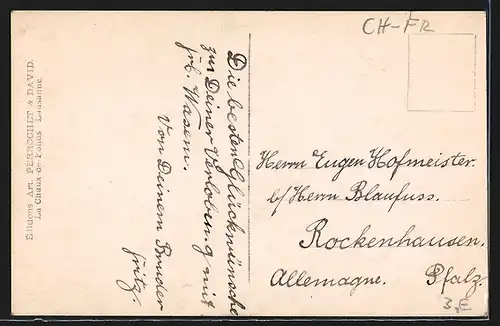 CH-FR
Editions Art. PERROCHET & DAVID.
La Chaux-de-Fonds - Lausanne
Die besten Glückwünsche
zur Deiner Verlobung mit
frl. Wasem.
Von Deinem Bruder
fritz.
Herrn Eugen Hofmeister.
b/ Herrn Blaufuss.
Rockenhausen.
Allemagne. Pfalz.
3,E